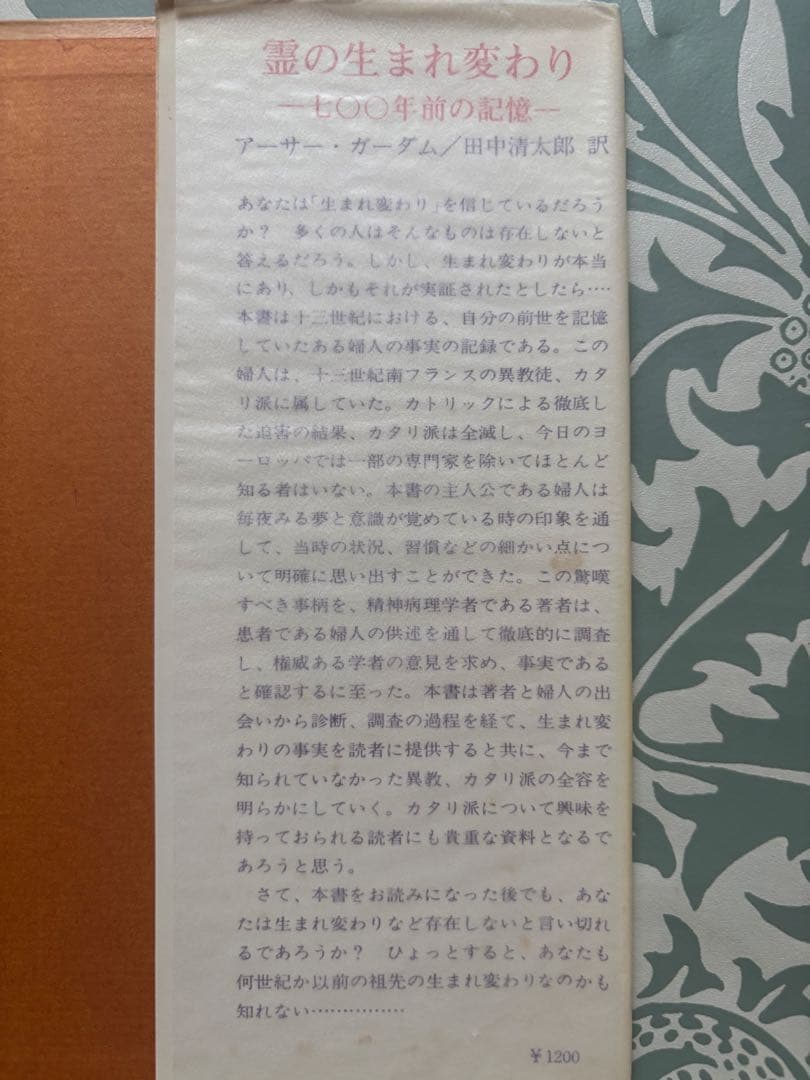 霊の生まれ変わり
—七〇〇年前の記憶—
アーサー・ガーダム／田中清太郎 訳
あなたは「生まれ変わり」を信じているだろう
か？　多くの人はそんなものは存在しないと
答えるだろう。しかし、生まれ変わりが本当
にあり、しかもそれが実証されたとしたら‥‥
本書は十三世紀における、自分の前世を記憶
していたある婦人の事実の記録である。この
婦人は、十三世紀南フランスの異教徒、カタ
リ派に属していた。カトリックによる徹底し
た迫害の結果、カタリ派は全滅し、今日のヨ
ーロッパでは一部の専門家を除いてほとんど
知る者はいない。本書の主人公である婦人は
毎夜みる夢と意識が覚めている時の印象を通
して、当時の状況、習慣などの細かい点につ
いて明確に思い出すことができた。この驚嘆
すべき事柄を、精神病理学者である著者は、
患者である婦人の供述を通して徹底的に調査
し、権威ある学者の意見を求め、事実である
と確認するに至った。本書は著者と婦人の出
会いから診断、調査の過程を経て、生まれ変
わりの事実を読者に提供すると共に、今まで
知られていなかった異教、カタリ派の全容を
明らかにしていく。カタリ派について興味を
持っておられる読者にも貴重な資料となるで
あろうと思う。
　さて、本書をお読みになった後でも、あな
たは生まれ変わりなど存在しないと言い切れ
るであろうか？　ひょっとすると、あなたも
何世紀か以前の祖先の生まれ変わりなのかも
知れない……………
¥1200